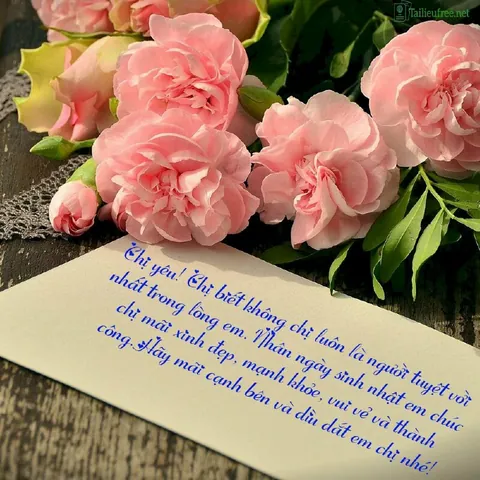 Tailieufree.net
Chị yêu! Chị biết không chị luôn là người tuyệt vời
nhất trong lòng em. Nhân ngày sinh nhật em chúc
chị mãi xinh đẹp, mạnh khỏe, vui vẻ và thành
công. Hãy mãi cạnh bên và dìu dắt em chị nhé!